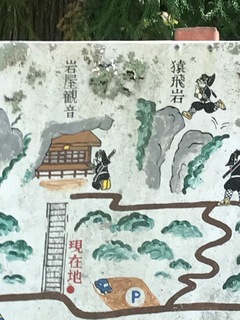 猿飛岩
岩屋観音
現在地
P